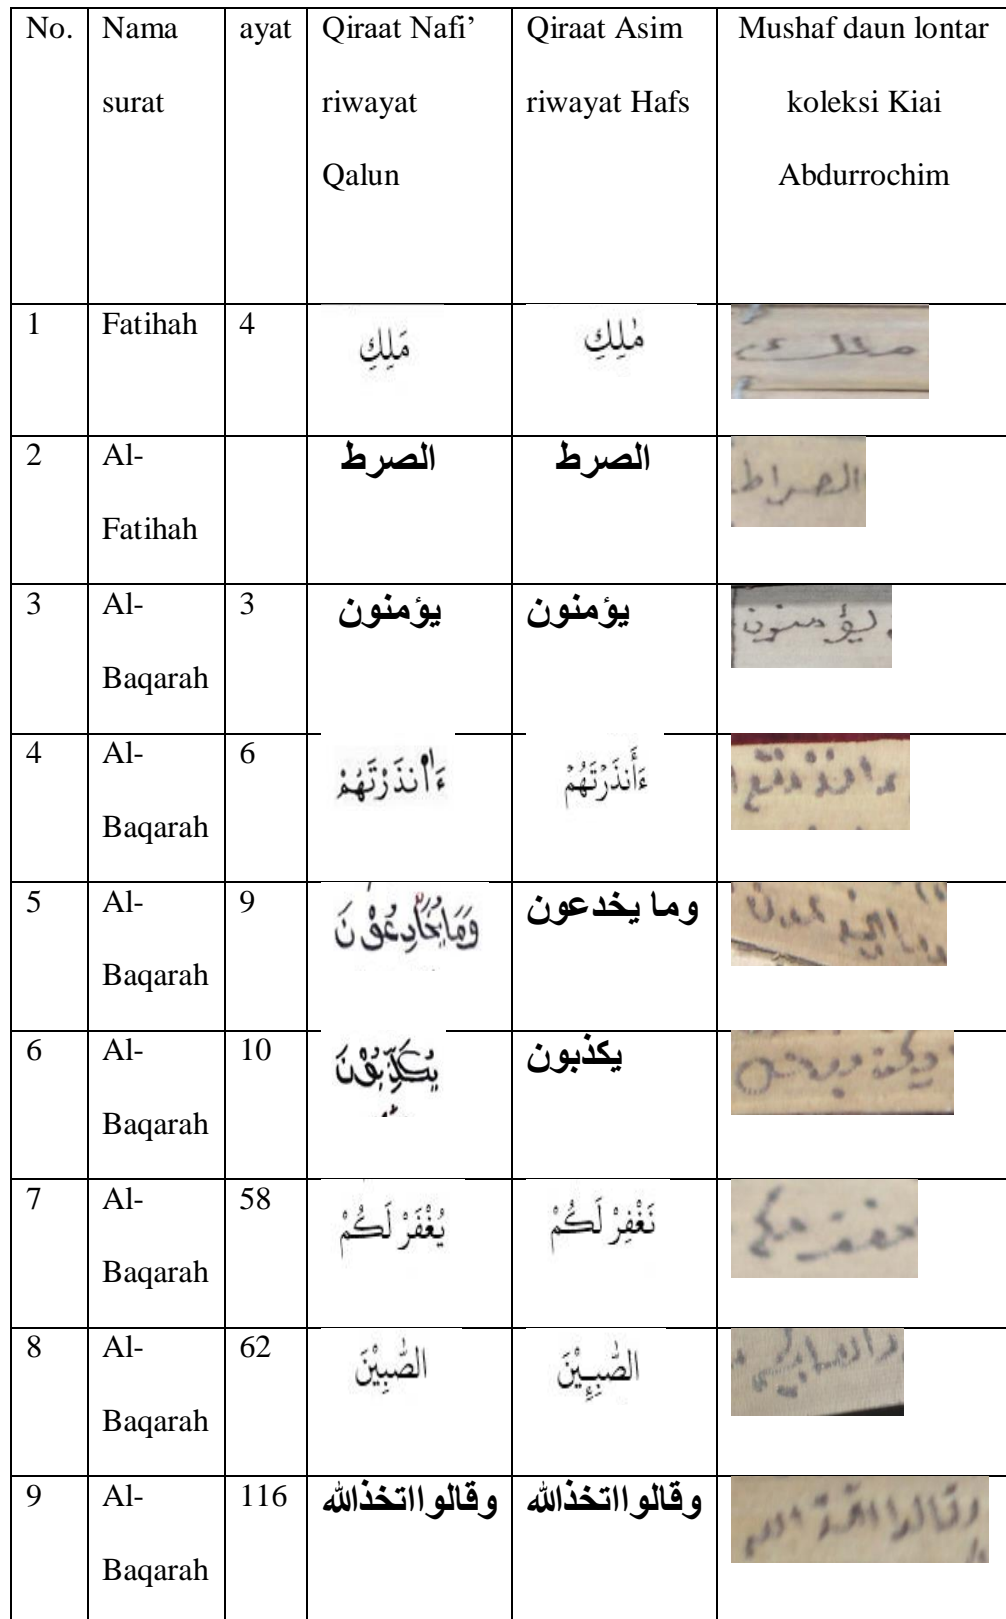 No. Nama surat ayat Qiraat Nafi’ riwayat Qalun Qiraat Asim riwayat Hafs Mushaf daun lontar koleksi Kiai Abdurrochim
1 Fatihah 4 مَلِكِ مٰلِكِ ملك
2 Al-Fatihah الصرط الصرط الصراط
3 Al-Baqarah 3 يؤمنون يؤمنون يؤمنون
4 Al-Baqarah 6 ءَا۬نذَرْتَهُمْ ءَأَنذَرْتَهُمْ
5 Al-Baqarah 9 وَمَا يُخَادِعُوْنَ وما يخدعون
6 Al-Baqarah 10 يُكَذِّبُوْنَ يكذبون
7 Al-Baqarah 58 يُغْفَرْ لَكُمْ نَغْفِرْ لَكُمْ
8 Al-Baqarah 62 الصّٰبِيْنَ الصّٰبِـِٕيْنَ
9 Al-Baqarah 116 وقالوااتخذالله وقالوااتخذالله